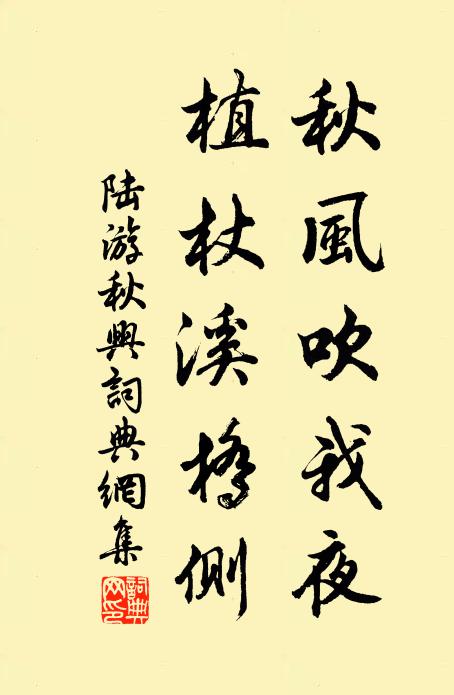 秋風吹我夜
植杖溪橋側
陆游秋興詞典網集
詞典网印